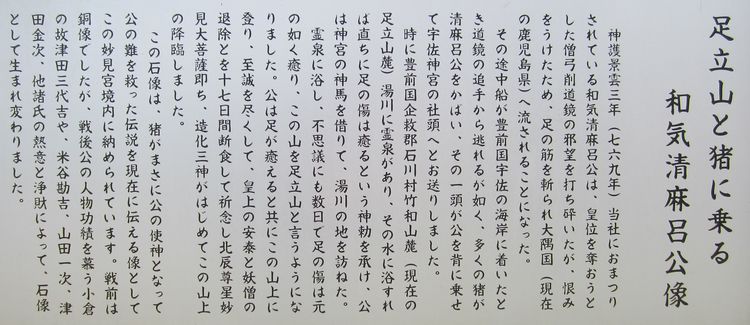 足立山と猪に乗る
和気清麻呂公像
神護景雲三年（七六九年）当社におまつり
されている和気清麻呂公は、皇位を奪おうと
した僧弓削道鏡の邪望を打ち砕いたが、恨み
をうけたため、足の筋を斬られ大隅国（現在
の鹿児島県）へ流されることになった。
その途中船が豊前国宇佐の海岸に着いたと
き道鏡の追手から逃れるが如く、多くの猪が
清麻呂公をかばい、その一頭が公を背に乗せ
て宇佐神宮の社頭へとお送りしました。
時に豊前国企救郡石川村竹和山麓（現在の
足立山麓）湯川に霊泉があり、その水に浴すれ
ば直ちに足の傷は癒るという神勅を承け、公
は神宮の神馬を借りて、湯川の地を訪ねた。
霊泉に浴し、不思議にも数日で足の傷は元
の如く癒り、この山を足立山と言うようにな
りました。公は足が癒えると共にこの山上に
登り、至誠を尽くして、皇上の安泰と妖僧の
退除とを十七日間断食して祈念し北辰尊星妙
見大菩薩即ち、造化三神がはじめてこの山上
の降臨しました。
この石像は、猪がまさに公の使神となって
公の難を救った伝説を現在に伝える像として
この妙見宮境内に納められています。戦前は
銅像でしたが、戦後公の人物功績を慕う小倉
の故津田三代吉や、米谷勘吉、山田一次、津
田金次、他諸氏の熱意と浄財によって、石像
として生まれ変わりました。